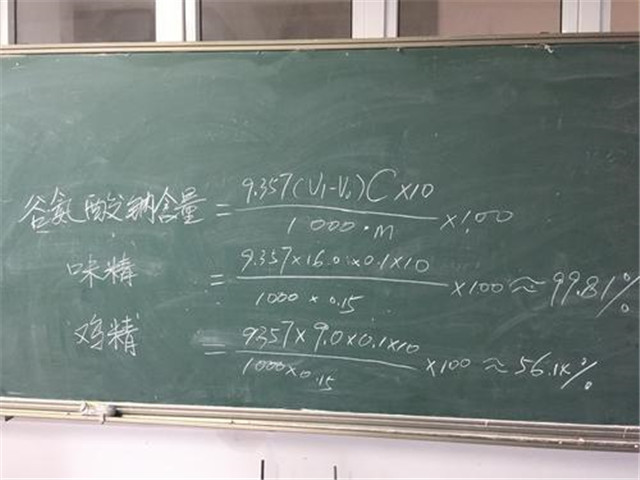 谷氨酸钠含量 = 9.357(V₁-V₀)C×10 / 1000·M ×100
味精 = 9.357×16.0×0.1×10 / 1000×0.15 ×100≈99.81%
鸡精 = 9.357×9.0×0.1×10 / 1000×0.15 ×100≈56.14%